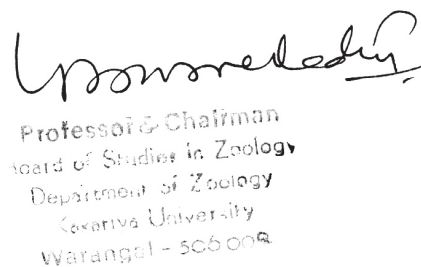 Professor & Chairman
Board of Studies in Zoology
Department of Zoology
Kakatiya University
Warangal - 506 009